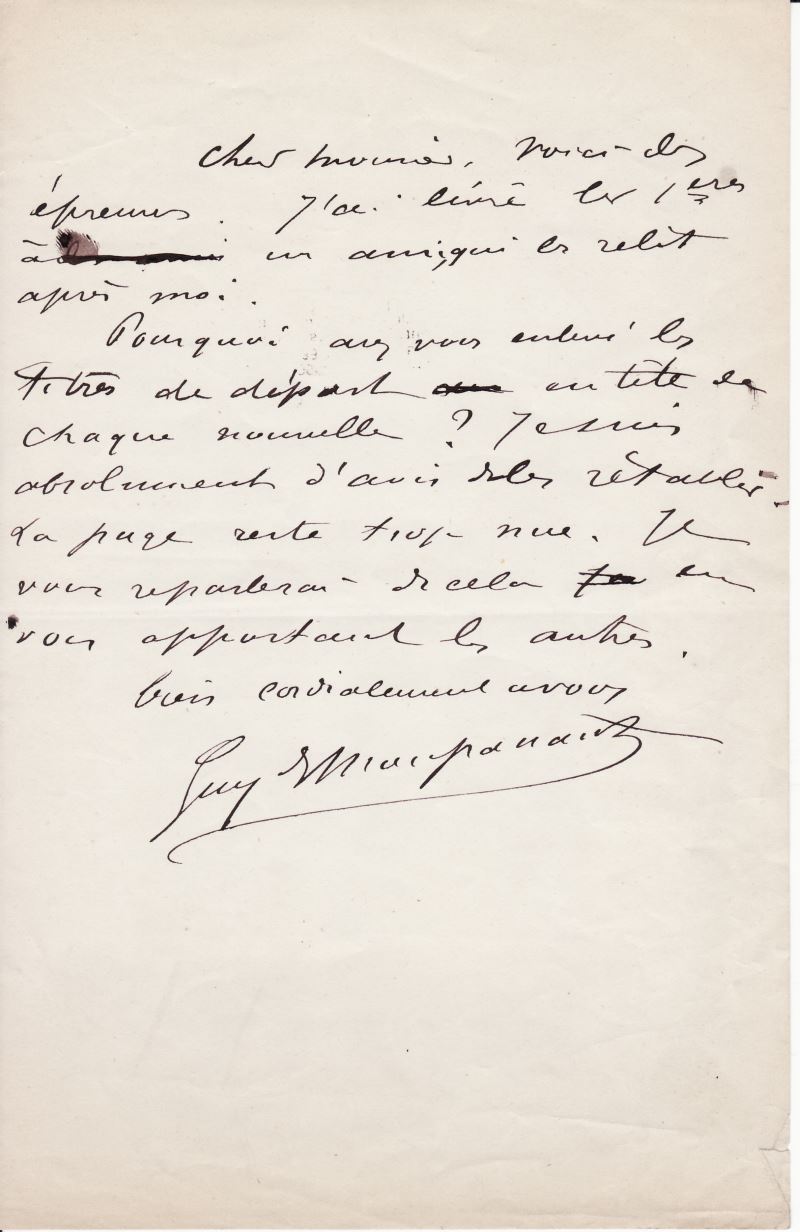 Cher monsieur, voici des
épreuves. J'ai livré les 1eres
à des amis un ami, qui les relit
après moi.
Pourquoi avez vous enlevé les
titres de départ au en tête de
chaque nouvelle ? Je suis
absolument d'avis de les rétablir.
La page reste trop nue. Je
vous reparlerai de cela en
vous apportant les autres.
bien cordialement a vous
Guy de Maupassant